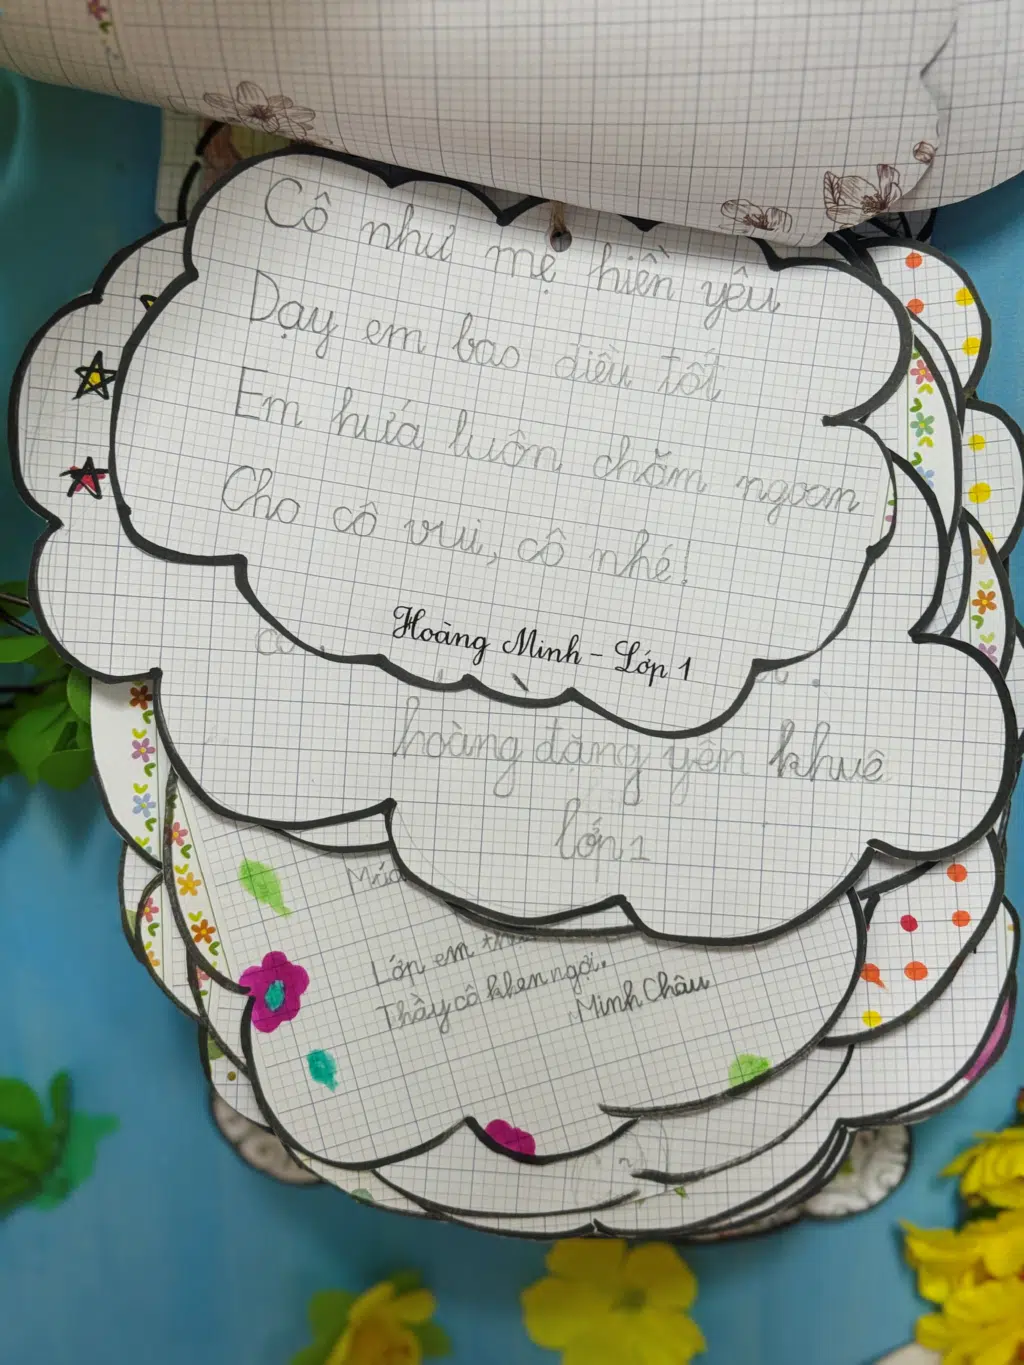 Cô như mẹ hiền yêu
Dạy em bao điều tốt
Em hứa luôn chăm ngoan
Cho cô vui, cô nhé!
Hoàng Minh - Lớp 1
hoàng đặng yên khuê
lớp 1
Múa
Lớp em
Thầy cô khen ngợi.
Minh Châu